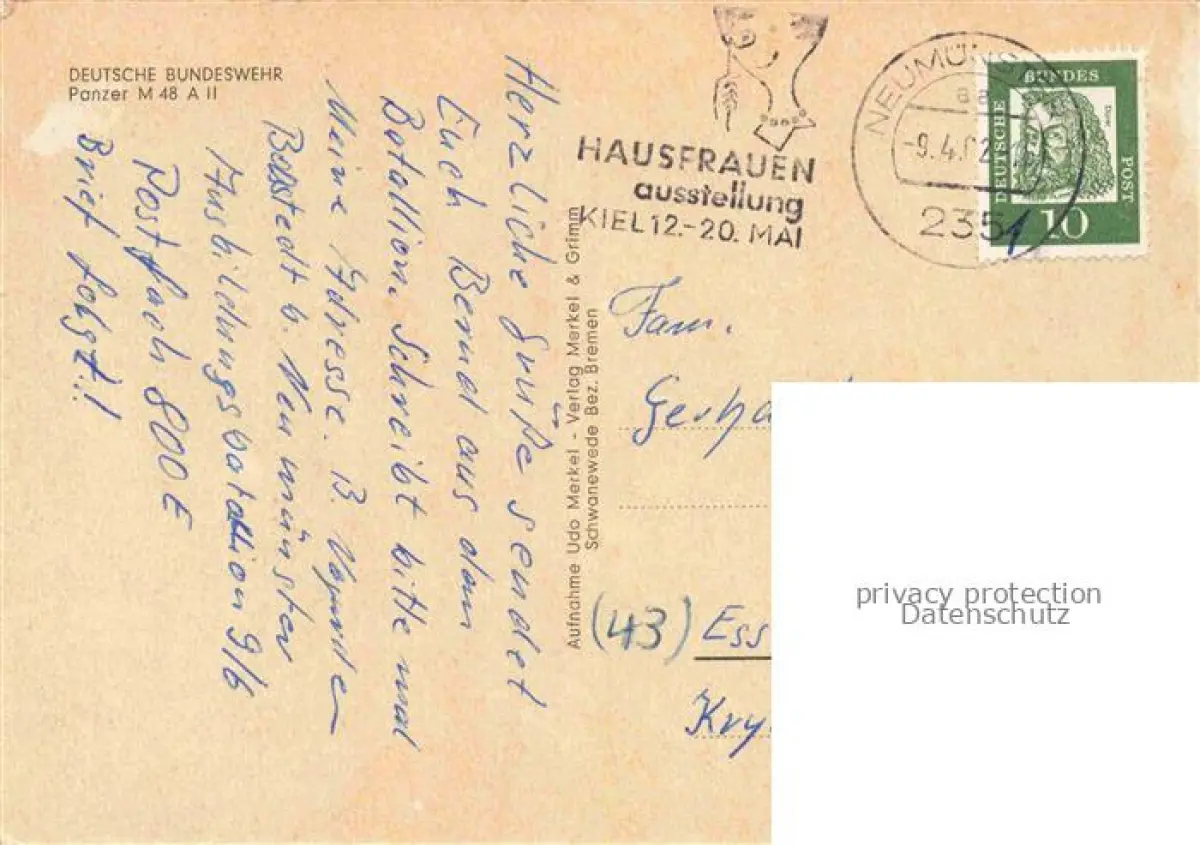 DEUTSCHE BUNDESWEHR
Panzer M 48 A II
Herzliche Grüße sendet
Euch Bernd aus dem
Batallion. Schreibt bitte mal
Meine Adresse. B.
b. Neumünster
Ausbildungsbatallion 9/6
Postfach 800 E
Brief folgt!!
Aufnahme Udo Merkel - Verlag Merkel & Grimm
Schwanewede Bez. Bremen
HAUSFRAUEN
ausstellung
KIEL 12.-20. MAI
NEUMÜNS
aa
-9.4.62
2351
DEUTSCHE BUNDES POST
Dürer
10
Fam.
Gerha
(43) Ess
privacy protection
Datenschutz